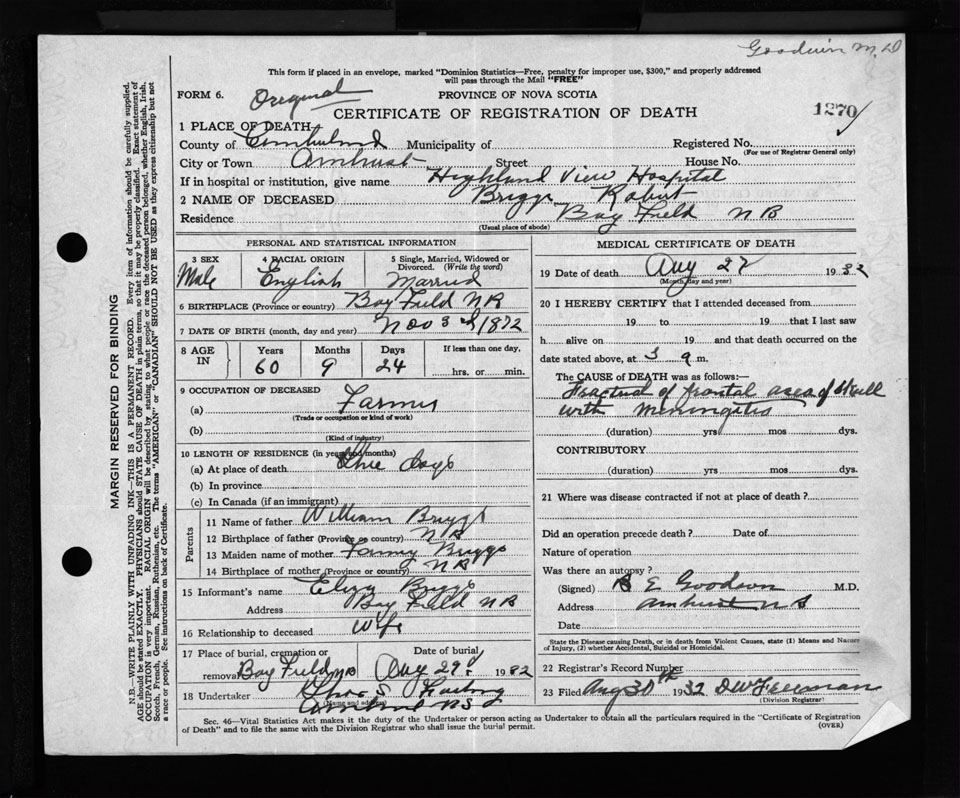 Goodwin M.D
This form if placed in an envelope, marked "Dominion Statistics—Free, penalty for improper use, $300," and properly addressed
will pass through the Mail "FREE"
FORM 6. Original PROVINCE OF NOVA SCOTIA
CERTIFICATE OF REGISTRATION OF DEATH 1270
1 PLACE OF DEATH
County of Cumberland Municipality of Registered No.
(For use of Registrar General only)
City or Town Amherst Street House No.
If in hospital or institution, give name Highland View Hospital
2 NAME OF DECEASED Briggs Robert
Residence Bay Field NB
(Usual place of abode)
PERSONAL AND STATISTICAL INFORMATION
3 SEX 4 RACIAL ORIGIN 5 Single, Married, Widowed or
Divorced. (Write the word)
Male English Married
6 BIRTHPLACE (Province or country) Bay Field NB
7 DATE OF BIRTH (month, day and year) Nov 3rd 1872
8 AGE IN Years Months Days If less than one day,
60 9 24 hrs. or min.
9 OCCUPATION OF DECEASED
(a) Farmer
(Trade or occupation or kind of work)
(b)
(Kind of industry)
10 LENGTH OF RESIDENCE (in years and months)
(a) At place of death three days
(b) In province
(c) In Canada (if an immigrant)
Parents
11 Name of father William Briggs
12 Birthplace of father (Province or country) NB
13 Maiden name of mother Fanny Briggs
14 Birthplace of mother (Province or country) NB
15 Informant's name Eliza Briggs
Address Bay Field NB
16 Relationship to deceased Wife
17 Place of burial, cremation or Date of burial
removal Bay Field NB Aug 29 1932
18 Undertaker Chas S.
(Name and address)
Amherst NS
MEDICAL CERTIFICATE OF DEATH
19 Date of death Aug 27 1932
(Month, day and year)
20 I HEREBY CERTIFY that I attended deceased from
19 to 19 that I last saw
h alive on 19 and that death occurred on the
date stated above, at 3 a m.
The CAUSE of DEATH was as follows:—
Fractured of frontal area of skull
with Meningitis
(duration) yrs mos dys.
CONTRIBUTORY
(duration) yrs mos dys.
21 Where was disease contracted if not at place of death?
Did an operation precede death? Date of
Nature of operation
Was there an autopsy?
(Signed) E Goodwin M.D.
Address Amherst NS
Date
State the Disease causing Death, or in death from Violent Causes, state (1) Means and Nature
of Injury, (2) whether Accidental, Suicidal or Homicidal.
22 Registrar's Record Number
23 Filed Aug 30th 1932 DW Freeman
(Division Registrar)
Sec. 46—Vital Statistics Act makes it the duty of the Undertaker or person acting as Undertaker to obtain all the particulars required in the "Certificate of Registration
of Death" and to file the same with the Division Registrar who shall issue the burial permit. (OVER)
MARGIN RESERVED FOR BINDING
N.B.—WRITE PLAINLY WITH UNFADING INK—THIS IS A PERMANENT RECORD. Every item of information should be carefully supplied.
AGE should be stated EXACTLY. PHYSICIANS should STATE CAUSE OF DEATH in plain terms, so that it may be properly classified. Exact statement of
OCCUPATION is very important. RACIAL ORIGIN will be described by stating to what people or race the deceased person belonged, whether English, Irish,
Scotch, French, German, Russian, Ruthenian, etc. The terms "AMERICAN" or "CANADIAN" SHOULD NOT BE USED as they express citizenship but not
a race or people. See instructions on back of Certificate.